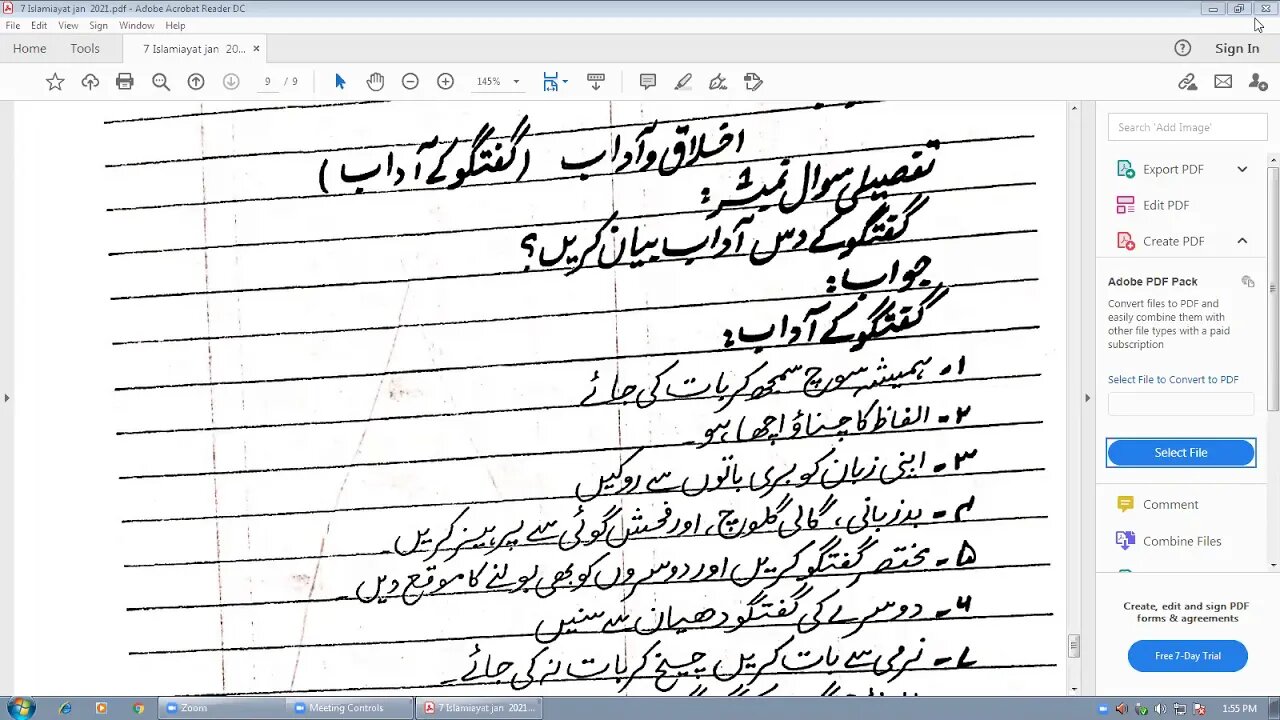 7 Islamiayat jan  2021.pdf - Adobe Acrobat Reader DC
File Edit View Sign Window Help
Home Tools 7 Islamiayat jan 20... × Sign In
9 / 9 145%
اخلاق و آداب (گفتگو کے آداب)
تفصیلی سوال نمبر 1:
گفتگو کے دس آداب بیان کریں؟
جواب:
گفتگو کے آداب:
۱- ہمیشہ سوچ سمجھ کر بات کی جائے
۲- الفاظ کا چناؤ اچھا ہو۔
۳- اپنی زبان کو بری باتوں سے روکیں
۴- بدزبانی، گالی گلوچ، اور فحش گوئی سے پرہیز کریں۔
۵- مختصر گفتگو کریں اور دوسروں کو بھی بولنے کا موقع دیں۔
۶- دوسرے کی گفتگو دھیان سے سنیں
۷- نرمی سے بات کریں چیخ کر بات نہ کی جائے۔
Search 'Add Image'
Export PDF
Edit PDF
Create PDF
Adobe PDF Pack
Convert files to PDF and
easily combine them with
other file types with a paid
subscription
Select File to Convert to PDF
Select File
Comment
Combine Files
Create, edit and sign PDF
forms & agreements
Free 7-Day Trial
Zoom Meeting Controls 7 Islamiayat jan 2021... 1:55 PM